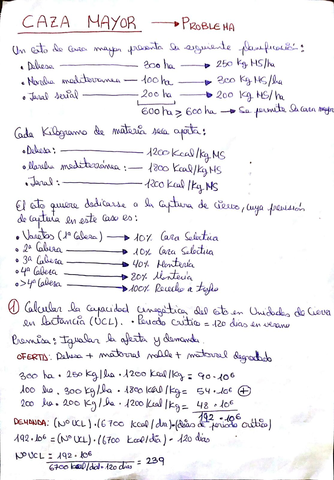 CAZA MAYOR → PROBLEMA
Un coto de caza mayor presenta la siguiente planificación:
• Dehesa → 300 ha → 250 Kg MS/ha
• Mancha mediterránea → 100 ha → 300 Kg MS/ha
• Jaral serial → 200 ha → 200 Kg MS/ha
600 ha ≥ 600 ha → Se permite la caza mayor
Cada Kilogramo de materia seca aporta:
• Dehesa: 1200 Kcal/Kg MS
• Mancha mediterránea: 1800 Kcal/Kg MS
• Jaral: 1200 Kcal/Kg MS
El coto quiere dedicarse a la captura de ciervo, cuya previsión
de captura en este caso es:
• Varetos (1ª Cabeza) → 10% Caza Selectiva
• 2ª Cabeza → 10% Caza Selectiva
• 3ª Cabeza → 40% Montería
• 4ª Cabeza → 80% Montería
• >4ª Cabeza → 100% Rececho a Trofeo
① Calcular la Capacidad Cinegética del coto en Unidades de Cierva
en Lactancia (UCL). • Periodo Crítico = 120 días en verano
Premisa: Igualar la oferta y demanda.
OFERTA: Dehesa + matorral noble + matorral degradado
300 ha · 250 Kg/ha · 1200 Kcal/Kg = 90·10⁶
100 ha · 300 Kg/ha · 1800 Kcal/Kg = 54·10⁶ +
200 ha · 200 Kg/ha · 1200 Kcal/Kg = 48·10⁶
192·10⁶
DEMANDA: (Nº UCL) · (6700 Kcal/día) · (días de periodo crítico)
192·10⁶ = (Nº UCL) · (6700 Kcal/día) · 120 días
Nº UCL = 192·10⁶ / 6700 Kcal/día · 120 días = 239